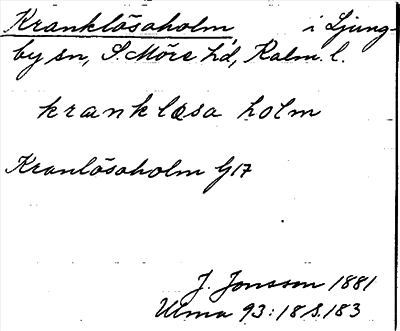 Kranklösaholm, i Ljung-
by sn, S. Möre hd, Kalm. l.
krankløsa holm
Kranlösaholm G17
J. Jonsson 1881
Ulma 93:18 S.183